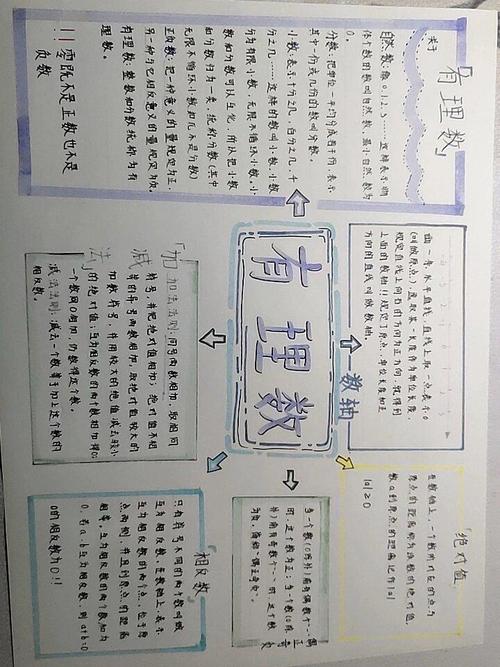 关于
「有理数」
自然数:像0.1.2.3……这样表示物
体个数的数叫自然数,最小自然数为
0。
分数:把单位一平均分成若干份,表示
其中一份或几份的数叫分数。
小数:表示十分之几,百分之几,千
分之几……这样的数叫小数,小数
分为有限小数,无限不循环小数。小
数和分数可以互化,所以把小数
和分数归为一类,统称分数(其中
无限不循环小数和几不是分数)
正负数:把一种意义的量规定为正,
另一种与它相反意义的量规定为负。
有理数:整数和分数统称为有
理数。
!!! 零既不是正数也不是
负数
有理数
数轴
画一条水平直线,直线上取一点表示0
(叫做原点),选取某一长度作为单位长度,
规定直线上向右的方向为正方向,就得到
上面的数轴!!规定了原点、单位长度和正
方向的直线叫做数轴。
「加减法」
加法法则:同号两数相加,取相同
符号,并把绝对值相加;绝对值不相
等的异号两数相加,取绝对值较大的
加数符号,并用较大的绝对值减去较小
的绝对值;互为相反数的两个数相加得0;
一个数同0相加,仍得这个数。
减法法则:减去一个数等于加上这个数的
相反数。
「绝对值」
在数轴上,一个数所对应的点与
原点的距离称为该数的绝对值,
数a到原点的距离记作|a|
|a|≥0
「相反数」
只有符号不同的两个数叫做
互为相反数,在数轴上,表示
互为相反数的两个点,位于原
点两侧,并且到原点的距离
相等。互为相反数的两个数相加为
0,若a、b互为相反数,则a+b=0
0的相反数为0!!